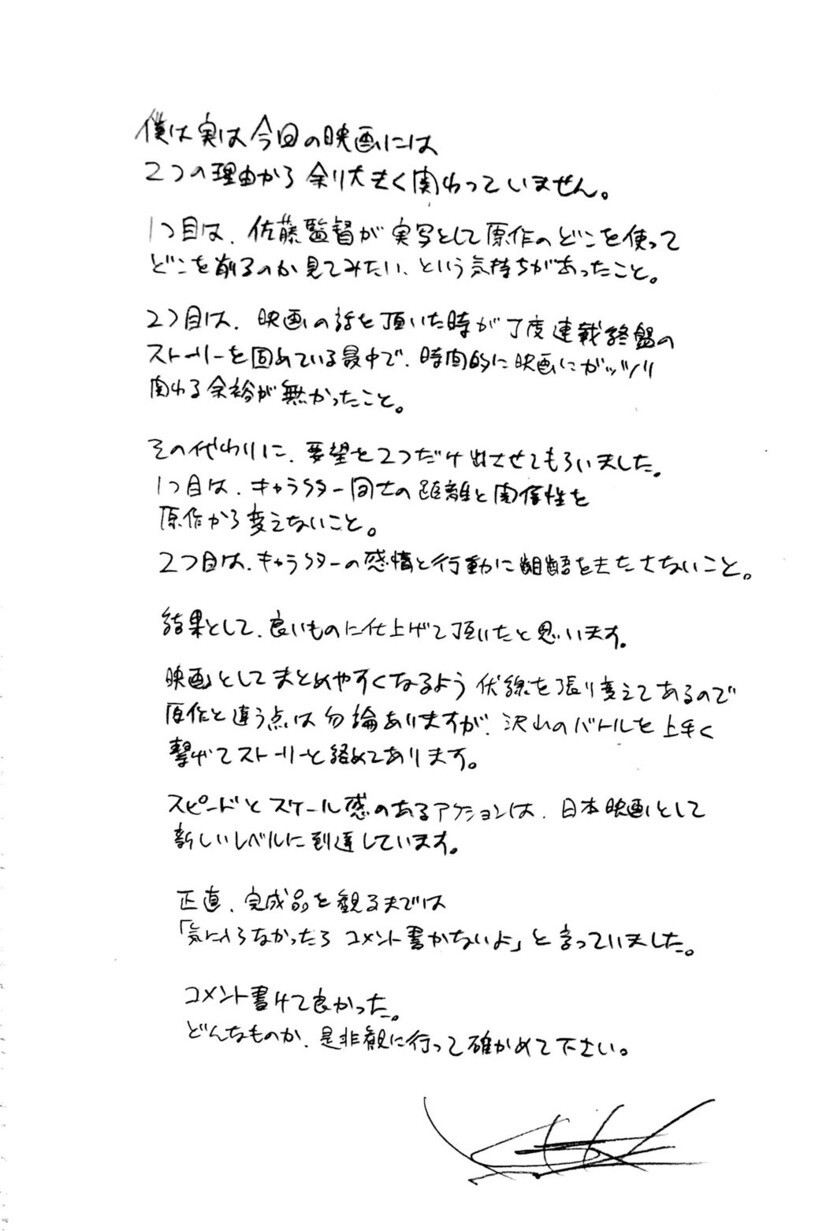 僕は実は今回の映画には
2つの理由から余り大きく関わっていません。
1つ目は、佐藤監督が実写として原作のどこを使って
どこを削るのか見てみたい、という気持ちがあったこと。
2つ目は、映画の話を頂いた時が丁度連載終盤の
ストーリーを固めている最中で、時間的に映画にガッツリ
関わる余裕が無かったこと。
その代わりに、要望を2つだけ出させてもらいました。
1つ目は、キャラクター同士の距離と関係性を
原作から変えないこと。
2つ目は、キャラクターの感情と行動に齟齬をきたさないこと。
結果として、良いものに仕上げて頂いたと思います。
映画としてまとめやすくなるよう伏線を張り変えてあるので
原作と違う点は勿論ありますが、沢山のバトルを上手く
繋げてストーリーと絡めてあります。
スピードとスケール感のあるアクションは、日本映画として
新しいレベルに到達しています。
正直、完成品を観るまでは
「気に入らなかったら コメント書かないよ」と言っていました。
コメント書けて良かった。
どんなものか、是非観に行って確かめて下さい。